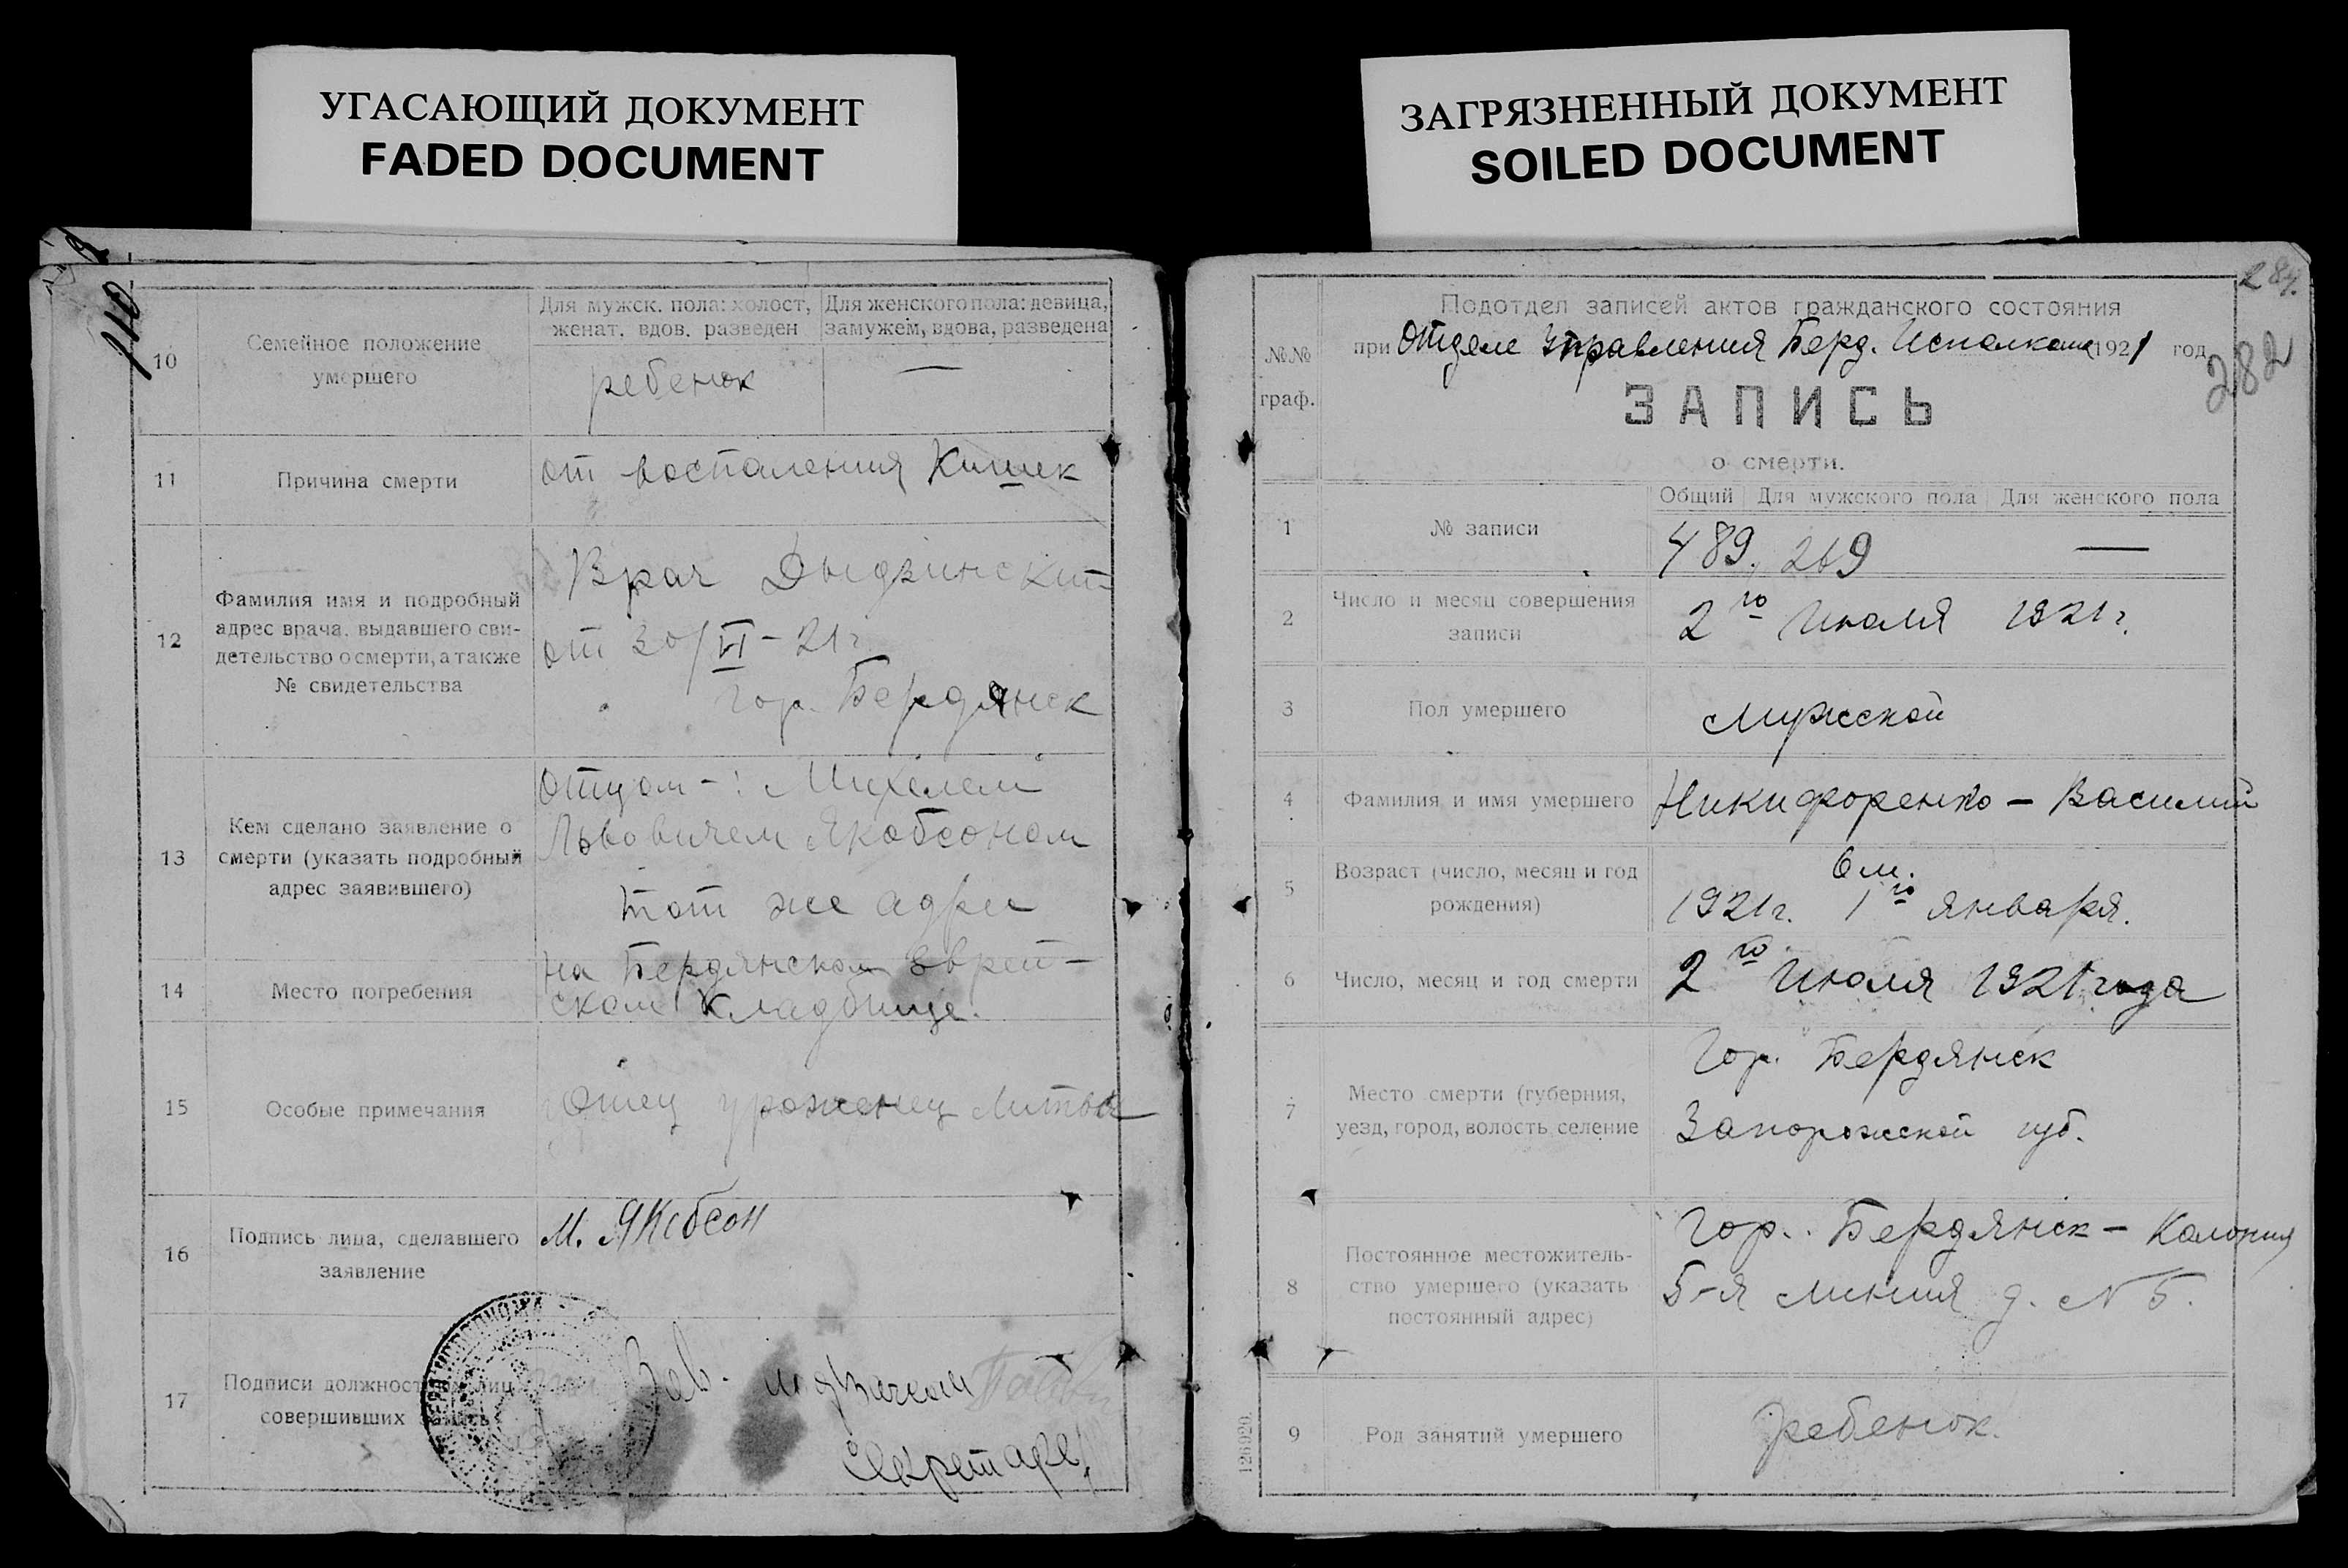 УГАСАЮЩИЙ ДОКУМЕНТ
FADED DOCUMENT
110
10
Семейное положение
умершего
Для мужск. пола: холост,
женат. вдов. разведен
Для женского пола: девица,
замужем, вдова, разведена
ребенок
—
11
Причина смерти
от воспаления Кишек
12
Фамилия имя и подробный
адрес врача, выдавшего сви-
детельство о смерти, а также
№ свидетельства
Врач Дыдзинский
от 30/VI – 21 г
гор. Бердянск
13
Кем сделано заявление о
смерти (указать подробный
адрес заявившего)
отцом - : Михелем
Львовичем Якобсоном
тот же адрес
14
Место погребения
на Бердянском Еврей-
ском кладбище.
15
Особые примечания
Отец уроженец Литвы
16
Подпись лица, сделавшего
заявление
М. Якобсон
17
Подписи должностных лиц
совершивших запись
Зав.
Секретарь
ЗАГРЯЗНЕННЫЙ ДОКУМЕНТ
SOILED DOCUMENT
284.
282
№№
граф.
Подотдел записей актов гражданского состояния
при Отделе Управления Берд. Исполкома 1921 год
ЗАПИСЬ
о смерти.
1
№ записи
Общий
Для мужского пола
Для женского пола
489.
269
—
2
Число и месяц совершения
записи
2го Июля 1921 г.
3
Пол умершего
мужской
4
Фамилия и имя умершего
Никифоренко – Василий
5
Возраст (число, месяц и год
рождения)
6 м.
1921 г. 1го января.
6
Число, месяц и год смерти
2го Июля 1921 года
7
Место смерти (губерния,
уезд, город, волость, селение
Гор. Бердянск
Запорожской губ.
8
Постоянное местожитель-
ство умершего (указать
постоянный адрес)
Гор. Бердянск – Колония
5-я линия д. № 5.
9
Род занятий умершего
ребенок.
126920.